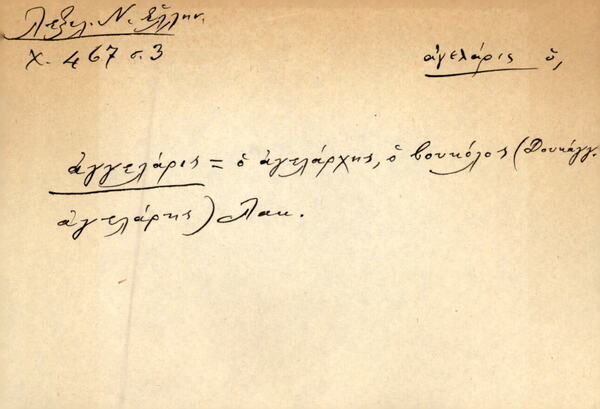 Λεξιλ. Ν. Ἑλλην.
Χ. 467 σ. 3
ἀγελάρις ὁ,
ἀγγελάρις = ὁ ἀγελάρχης, ὁ βουκόλος (Δουκάγγ.
ἀγελάρης) Λακ.